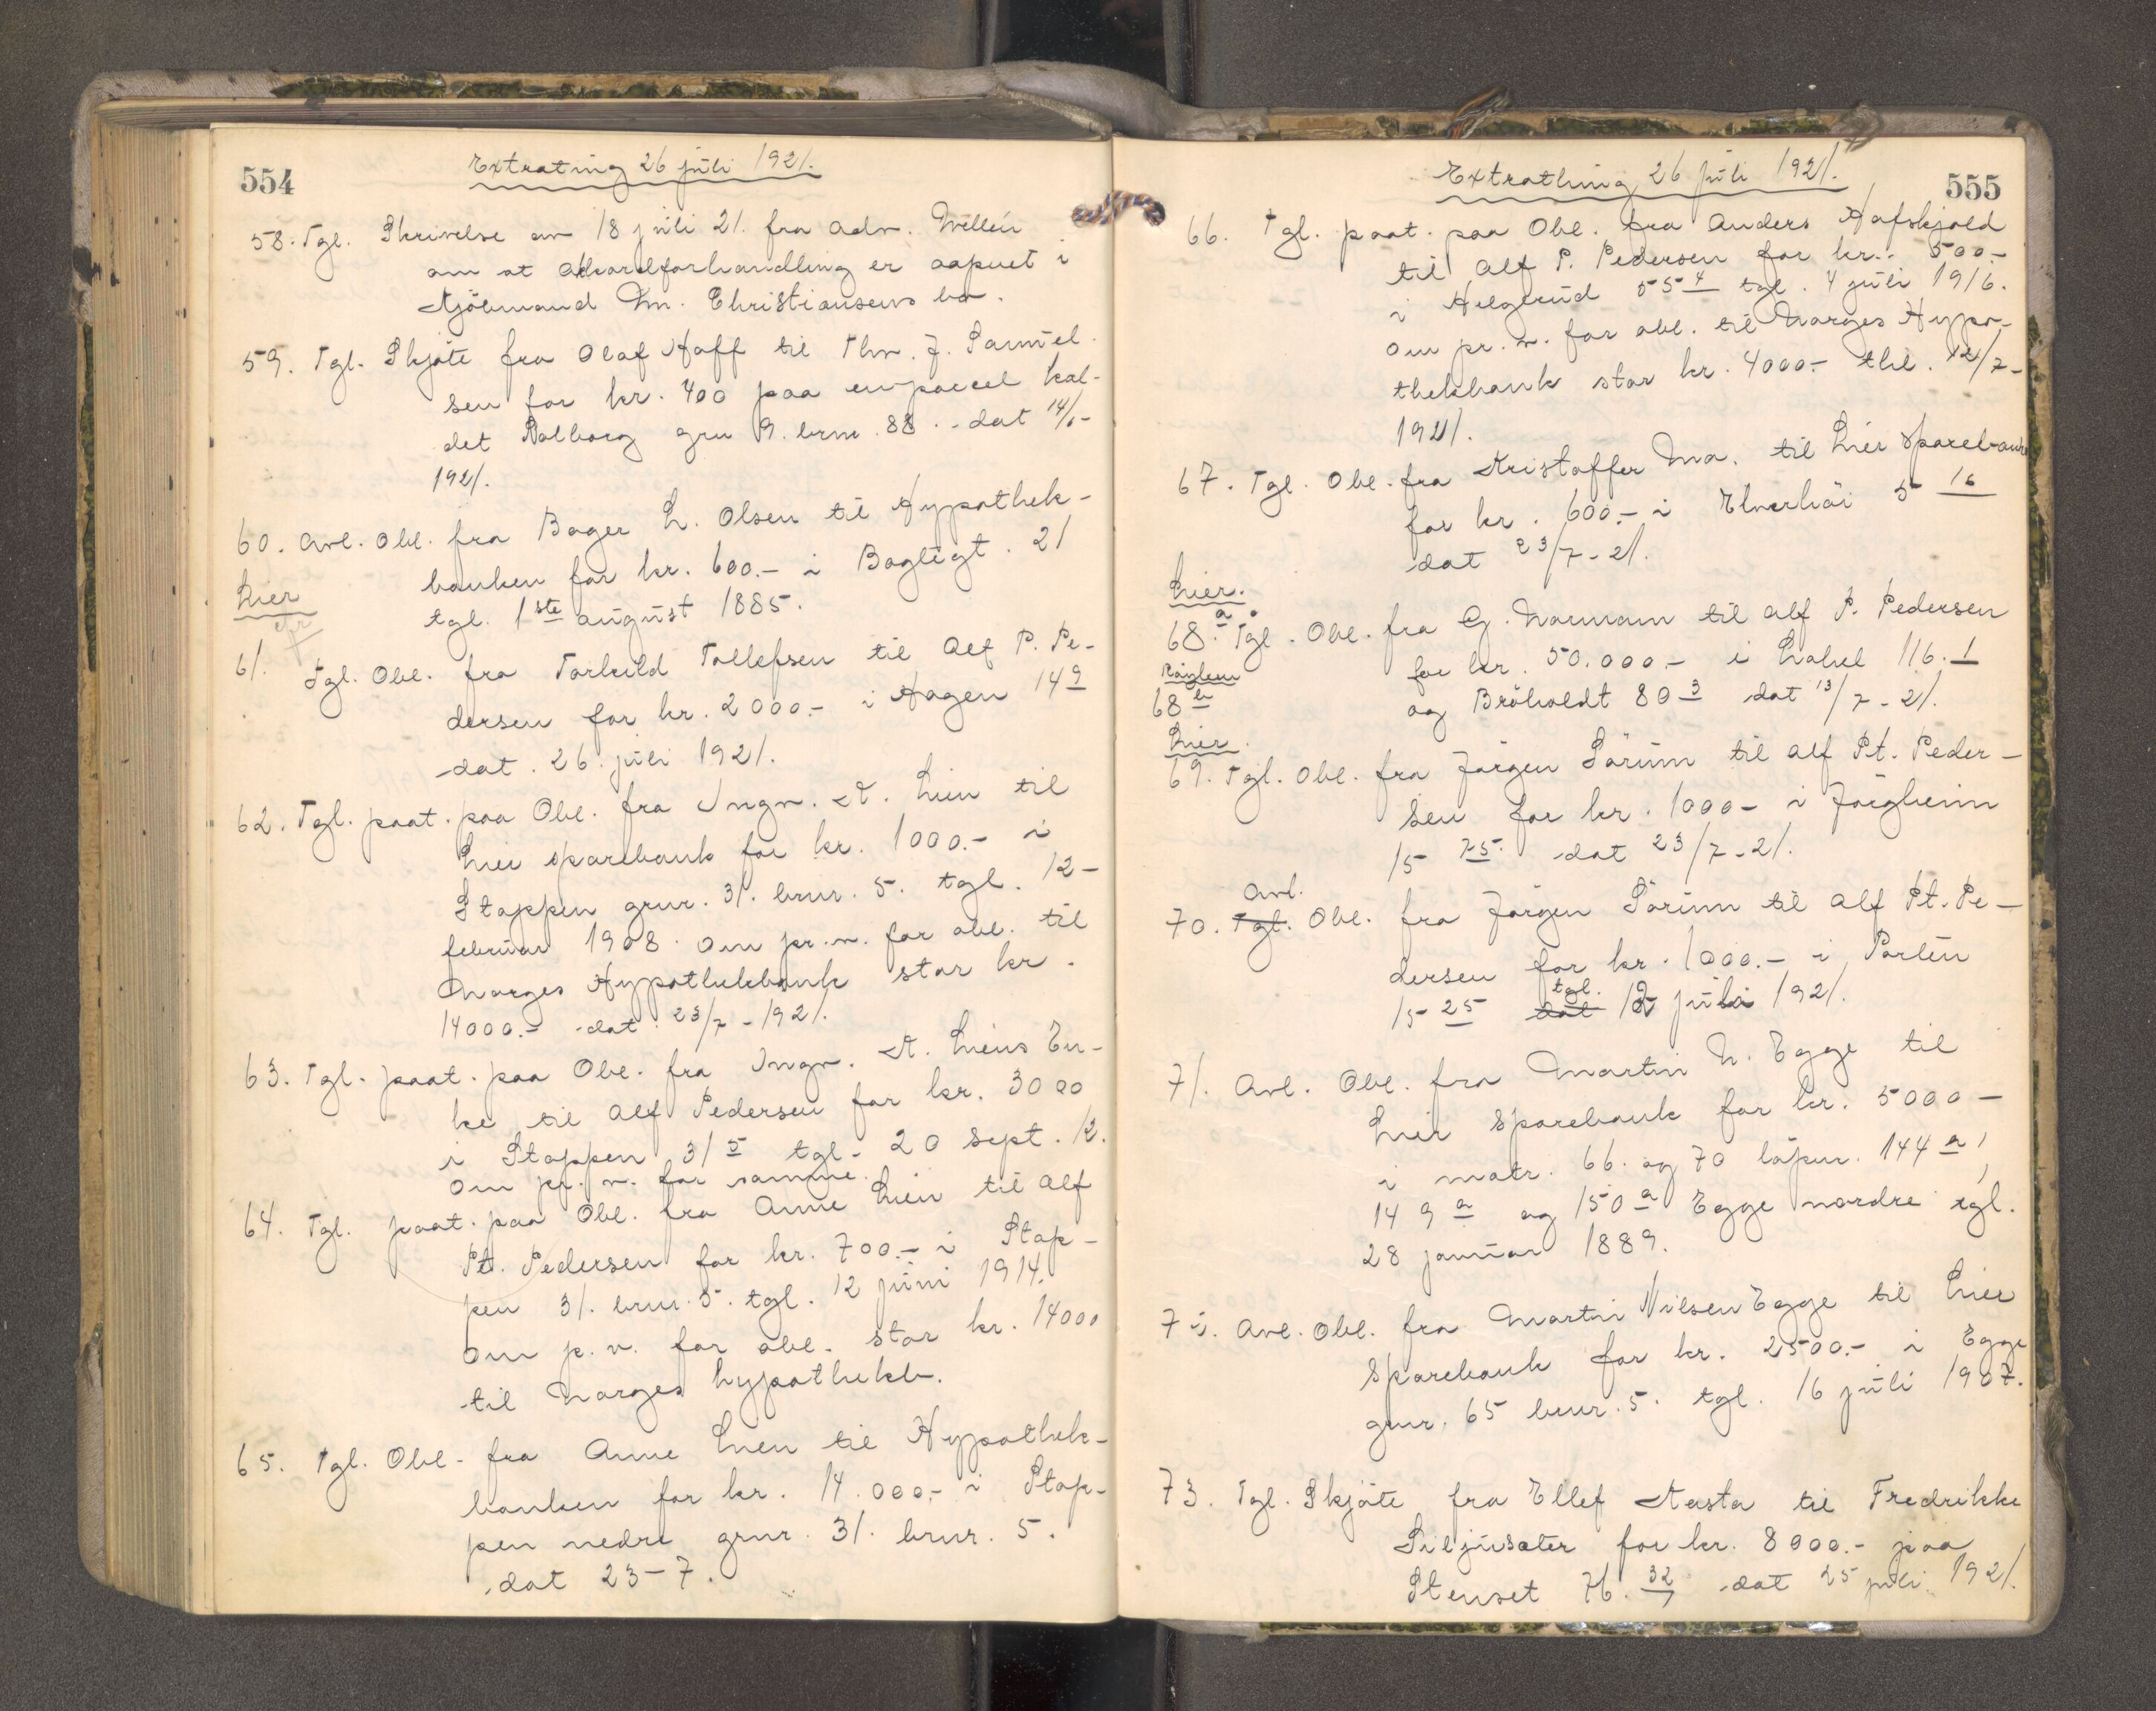 554
Extrating 26 juli 1921.
58. Tgl. Skrivelse av 18 juli 21. fra adv.
om at akkordforhandling er aapnet i
Kjöbmand Chr. Christiansens bo.
59. Tgl. Skjöte fra Olaf Hoff til Thv. J. Samuel-
sen for kr. 400 paa en parcel kal-
det Solborg gnr 9. brnr. 88. - dat 14/6-
1921.
60. Avl. Obl. fra Bager L. Olsen til Hypothek-
banken for kr. 600.- i Bagligt. 21
Lier
tgl. 1ste august 1885.
61. Tgl. Obl. fra Torkild Tollefsen til Alf P. Pe-
dersen for kr. 2000.- i Hagen 14 9
dat. 26 juli 1921.
62. Tgl. paat. paa Obl. fra Ingv. A. Lien til
Lier sparebank for kr. 1000.- i
Stoppen gnr. 31. brnr. 5. tgl. 12-
februar 1908. om pr. v. for obl. til
Norges Hypothekbank stor kr.
14000.- dat. 23/7-1921.
63. Tgl. paat. paa Obl. fra Ingv. A. Liens En-
ke til Alf Pedersen for kr. 3000
i Stoppen 31 5 tgl. 20 sept. 12.
om pr. v. for samme.
64. Tgl. paat. paa Obl. fra Anne Lien til Alf
Pt. Pedersen for kr. 700.- i Stop-
pen 31. brnr. 5. tgl. 12 juni 1914.
om p. v. for obl. stor kr. 14000
til Norges hypothekb.
65. Tgl. Obl. fra Anne Lien til Hypothek-
banken for kr. 14.000.- i Stop-
pen nedre gnr. 31. brnr. 5.
dat 23-7.
555
Extrathing 26 juli 1921.
66. Tgl. paat. paa Obl. fra Anders Hafskjold
til Alf P. Pedersen for kr. 500.-
i Helgerud 55 4 tgl. 4 juli 1916.
om pr. v. for obl. til Norges Hypo-
thekbank stor kr. 4000.- tbl. 12/7-
1921.
67. Tgl. Obl. fra Kristoffer Moa. til Lier Sparebank
for kr. 600.- i 5 16
dat 23/7-21.
Lier.
68.a Tgl. Obl. fra G. Normann til Alf P. Pedersen
for kr. 50.000.- i 116. 1
Röyken
68 b
og Bröholdt 80 3 dat 13/7-21.
Lier.
69. Tgl. Obl. fra Jörgen Sörum til Alf Pt. Peder-
sen for kr. 1000- i Jörgheim
15 75. dat 23/7-21.
Avl.
70. Tgl. Obl. fra Jörgen Sörum til Alf Pt. Pe-
dersen for kr. 1000.- i Porten
tgl.
15 25 dat 12 juli 1921.
71. Avl. Obl. fra Martin N. Egge til
Lier Sparebank for kr. 5000-
i matr. 66. og 70 löpnr. 144 a,
149 a og 150 a Egge nordre tgl.
28 januar 1889.
72. Avl. Obl. fra Martin Nilsen Egge til Lier
Sparebank for kr. 2500.- i Egge
gnr. 65 brnr. 5. tgl. 16 juli 1907.
73. Tgl. Skjöte fra Ellef Aasta til Fredrikke
Siljusæter for kr. 8000.- paa
Stenset 76. 32 dat 25 juli 1921.